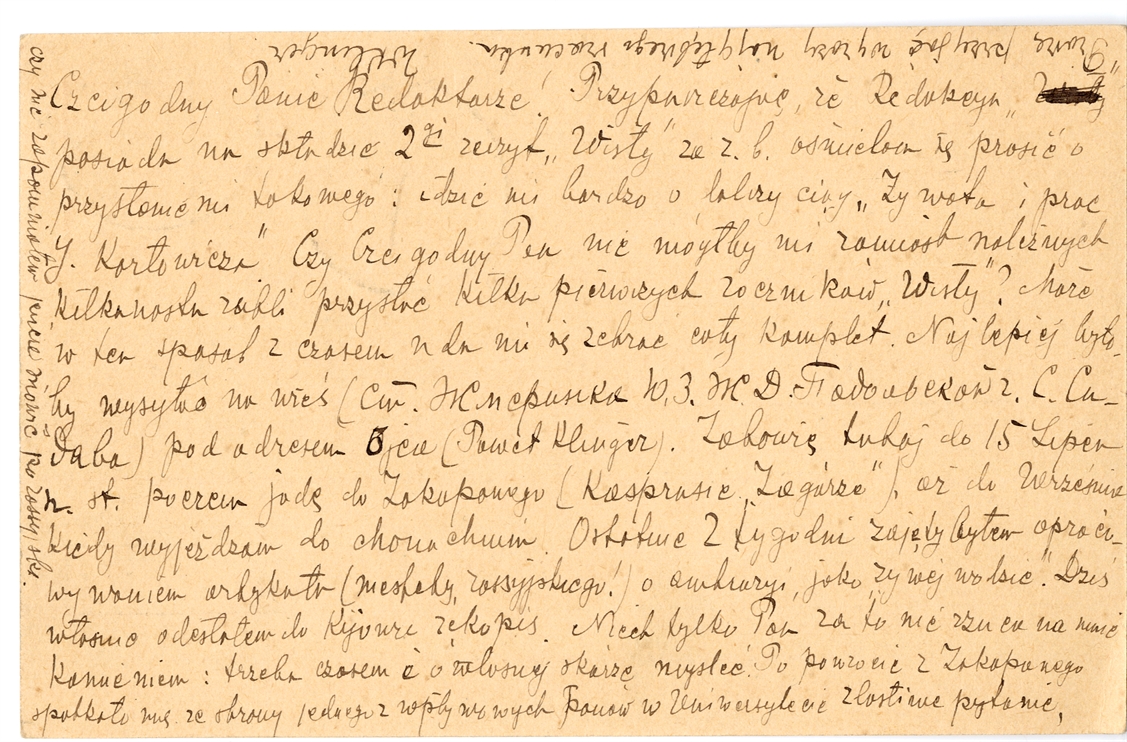 Czcigodny Panie Redaktorze! Przypuszczając, że Redakcya
posiada na składzie 2gi zeszyt „Wisły” za r. b. ośmielam się prosić o
przysłanie mi takowego: idzie mi bardzo o dalszy ciąg „Żywota i prac
J. Karłowicza” Czy Czcigodny Pan nie mógłby mi zamiast należnych
kilkunastu rubli przysłać kilka pierwszych roczników „Wisły”? Może
w ten sposób z czasem uda mi się zebrać cały komplet. Najlepiej było-
by wysyłać na wieś (Ст. Жмеринка Ю. З. Ж. Д. Подольской г. С. Са-
дава) pod adresem Ojca (Paweł Klinger). Zabawię tutaj do 15 Lipca
n. st. poczem jadę do Zakopanego (Kasprusie „Zagórze”), aż do Września
kiedy wyjeżdżam do
Ostatnie 2 tygodni zajęty byłem opraco-
wywaniem artykułu (niestety, rossyjskiego!) o ambrozyi, jako „żywej wodzie”. Dziś
właśnie odesłałem do Kijowa rękopis. Niech tylko Pan za to nie rzuca na mnie
kamieniem: trzeba czasem i o własnej skórze myśleć. Po powrocie z Zakopanego
spotkało mię ze strony jednego z wpływowych Panów w Uniwersytecie złośliwe pytanie,
czy nie zapomniałem jeszcze mówić po rossyjsku.
Proszę przyjąć wyrazy najgłębszego szacunku.
WKlinger